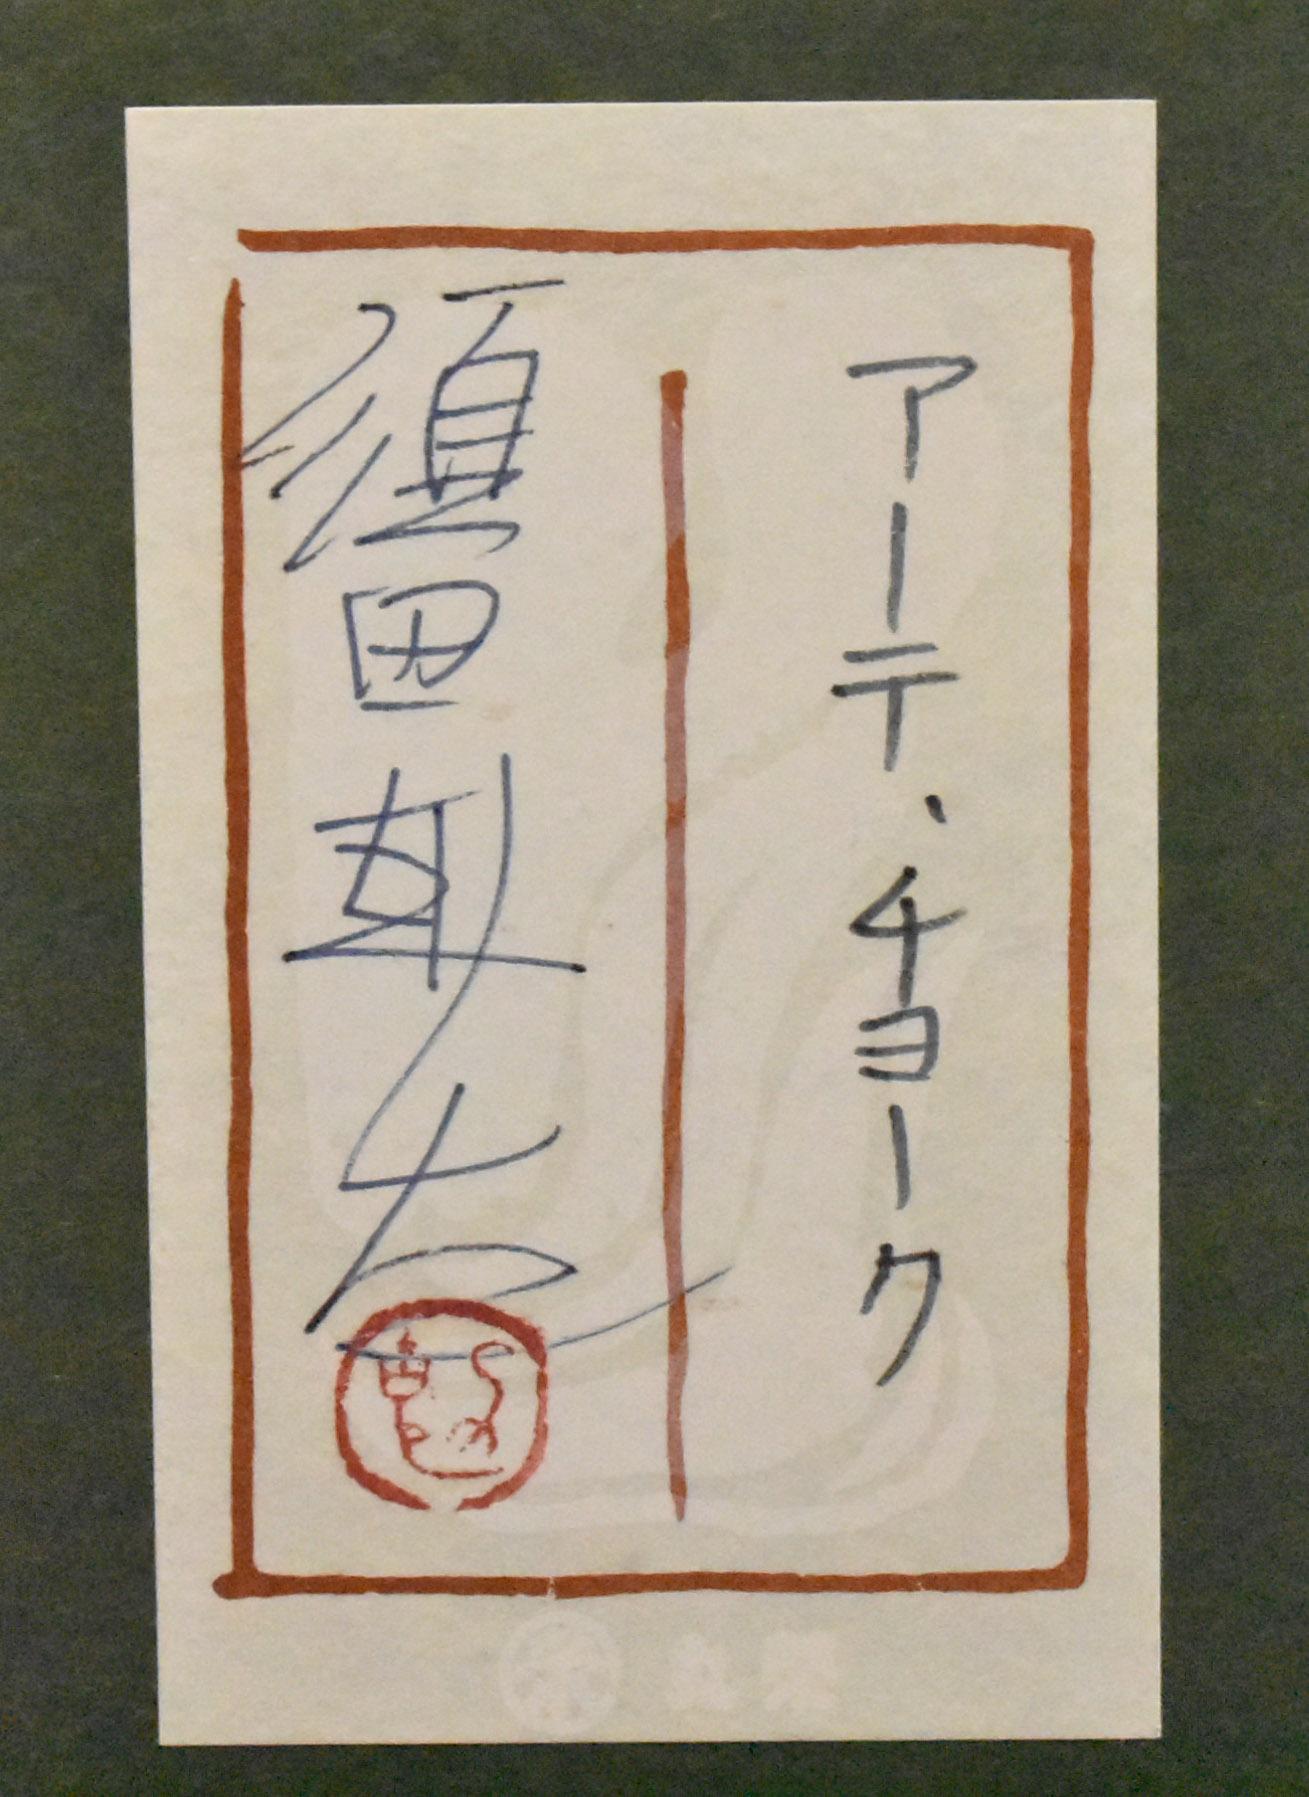 アーテ、チョーク
須田